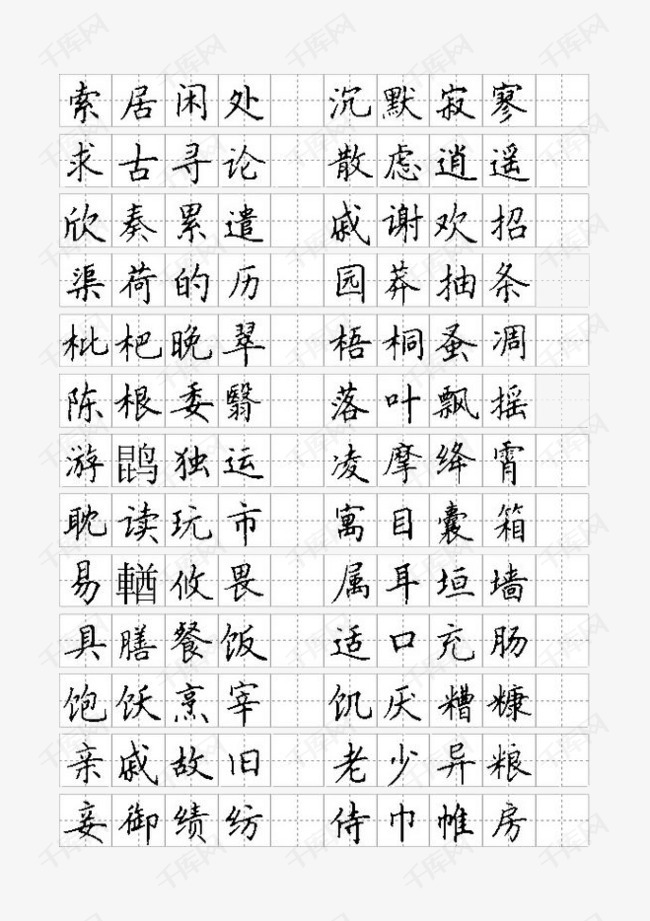 索居闲处 沉默寂寥
求古寻论 散虑逍遥
欣奏累遣 戚谢欢招
渠荷的历 园莽抽条
枇杷晚翠 梧桐蚤凋
陈根委翳 落叶飘摇
游鹍独运 凌摩绛霄
耽读玩市 寓目囊箱
易輶攸畏 属耳垣墙
具膳餐饭 适口充肠
饱饫烹宰 饥厌糟糠
亲戚故旧 老少异粮
妾御绩纺 侍巾帷房
千库网